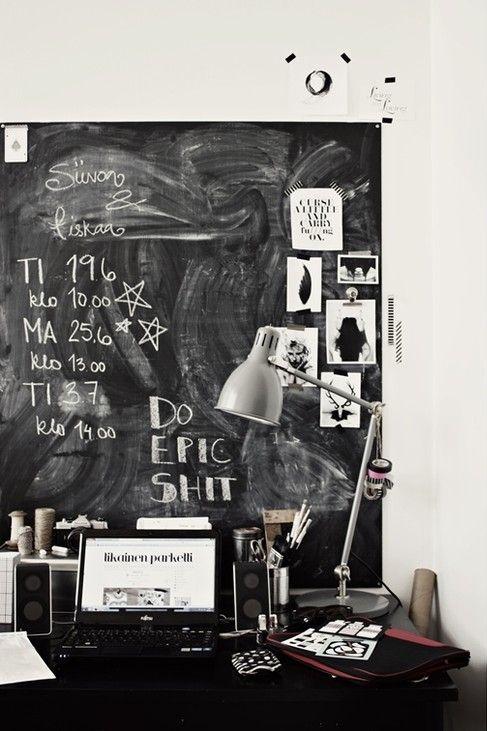 Living
Loving
Siivon
&
fiskaa
CURSE
A LITTLE
AND
CARRY
fu
ng
ON.
TI 19.6
klo 10.00
MA 25.6
klo 13.00
TI 3.7
klo 14.00
DO
EPIC
SHIT
likainen parketti
FUJITSU